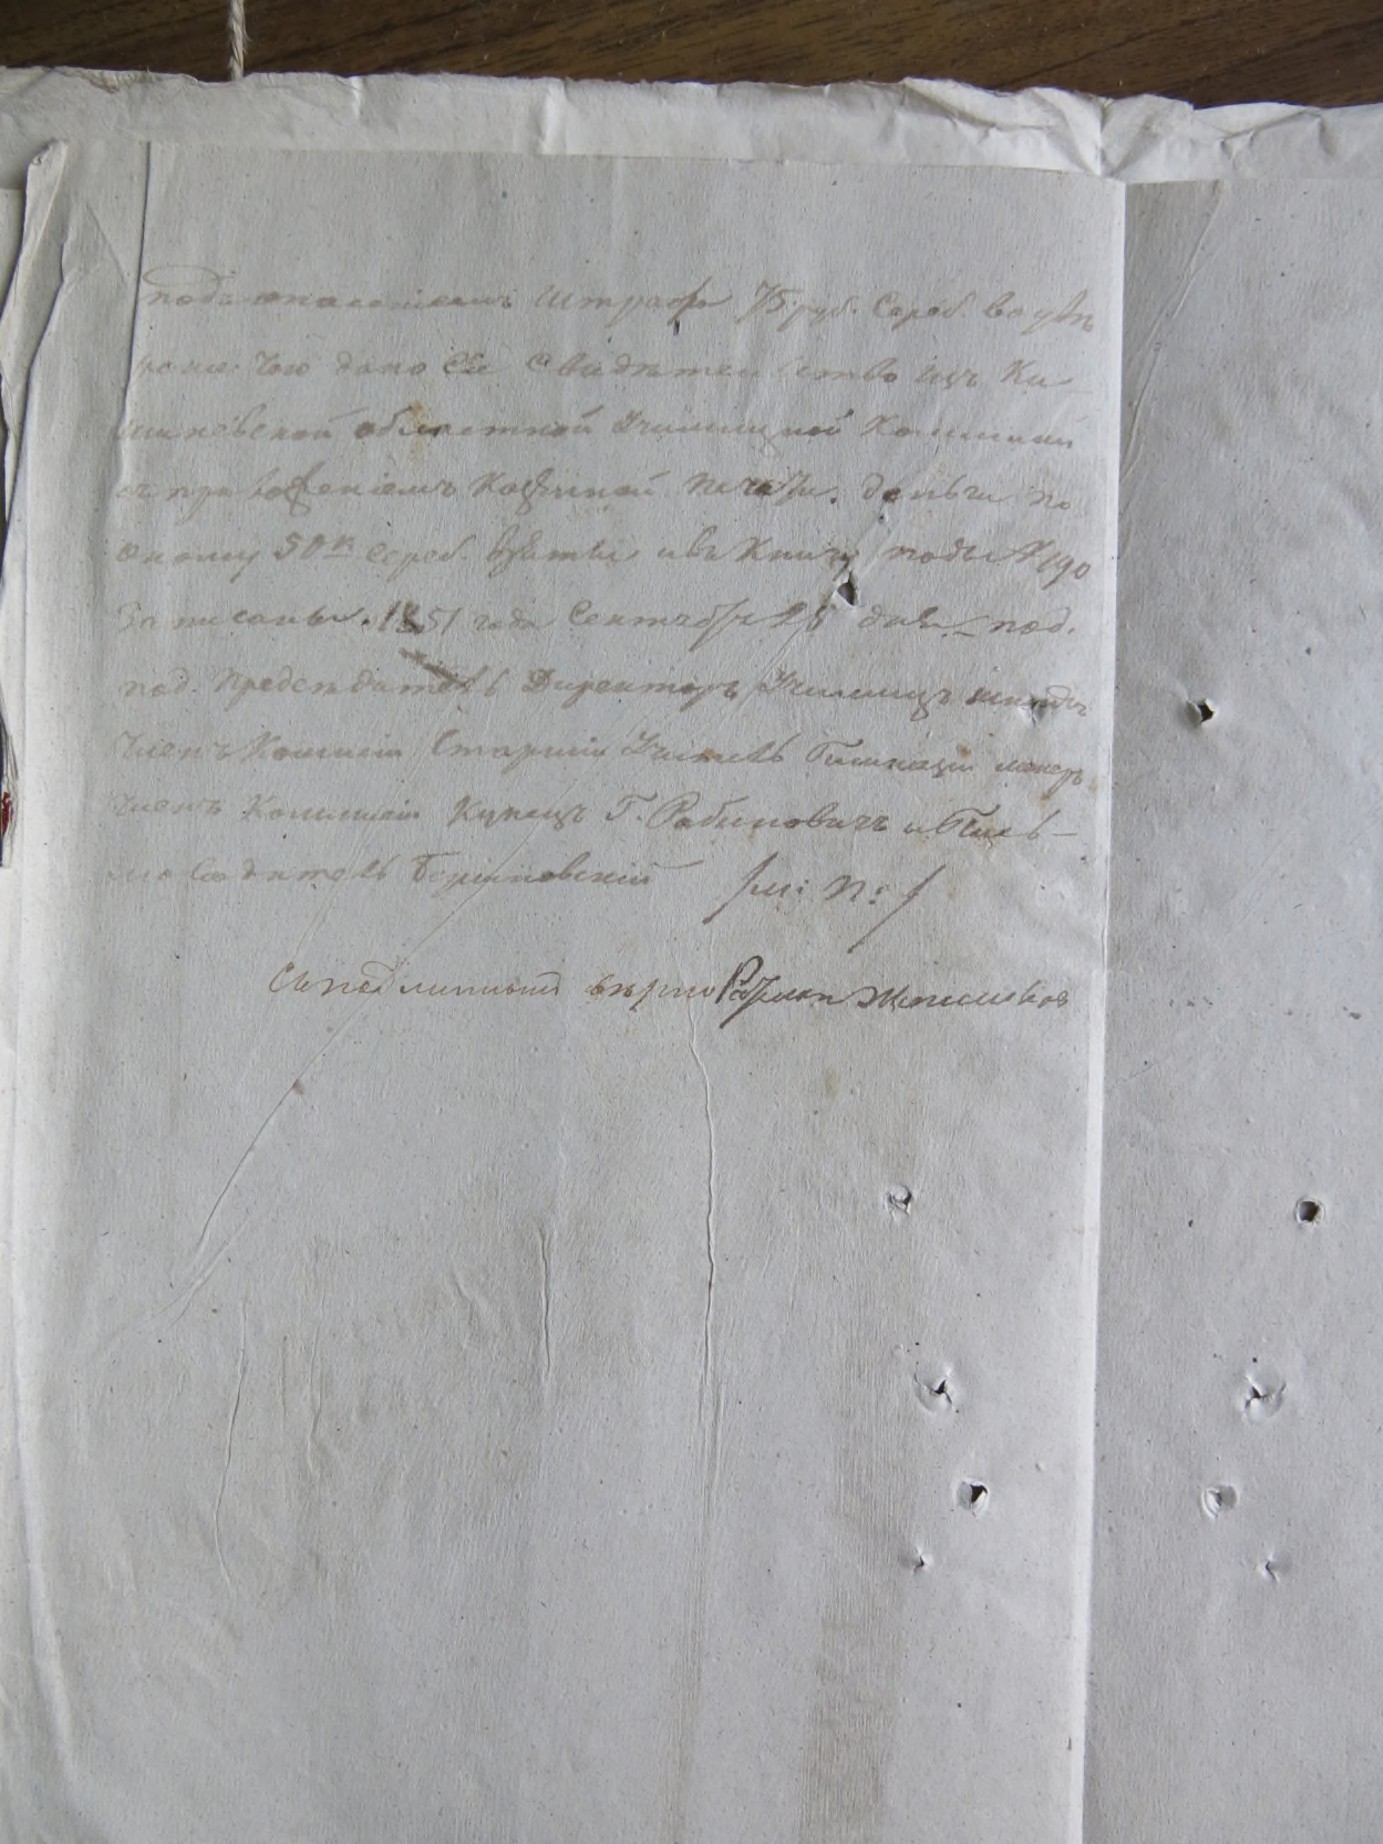 подъ опасениемъ штрафа 75 руб. Сереб. во увѣ
рение Чего дано Сіе Свидѣтельство изъ Ки
шиневской областной Училищной Коммисии
съ приложеніемъ Казенной печати. деньги по
оному 50 к Сереб. взяты и въ Книгу подъ № 190
Записаны. 1851 года Сентября 25 дня под.
под. Предсѣдатель Директоръ Училищъ
Членъ Комисіи Старшій Учитель Гимназіи
Членъ Комисіи Купецъ Г. Рабиновичъ и Пись
моводитель /М: П:/
Съ подлиннымъ вѣрно